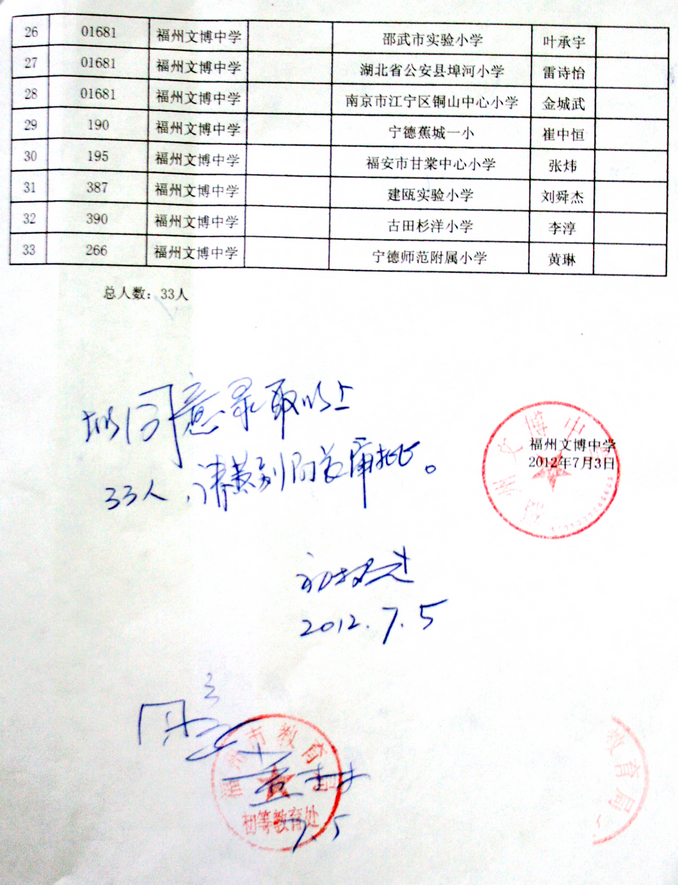 26 01681 福州文博中学 邵武市实验小学 叶承宇
27 01681 福州文博中学 湖北省公安县埠河小学 雷诗怡
28 01681 福州文博中学 南京市江宁区铜山中心小学 金城武
29 190 福州文博中学 宁德蕉城一小 崔中恒
30 195 福州文博中学 福安市甘棠中心小学 张炜
31 387 福州文博中学 建瓯实验小学 刘舜杰
32 390 福州文博中学 古田杉洋小学 李淳
33 266 福州文博中学 宁德师范附属小学 黄琳
总人数：33人
拟同意录取以上
33人，请黄副局长审批。
福州文博中
福州文博中学
2012年7月3日
2012.7.5
福州市教育局
初等教育处
7.5
教育局